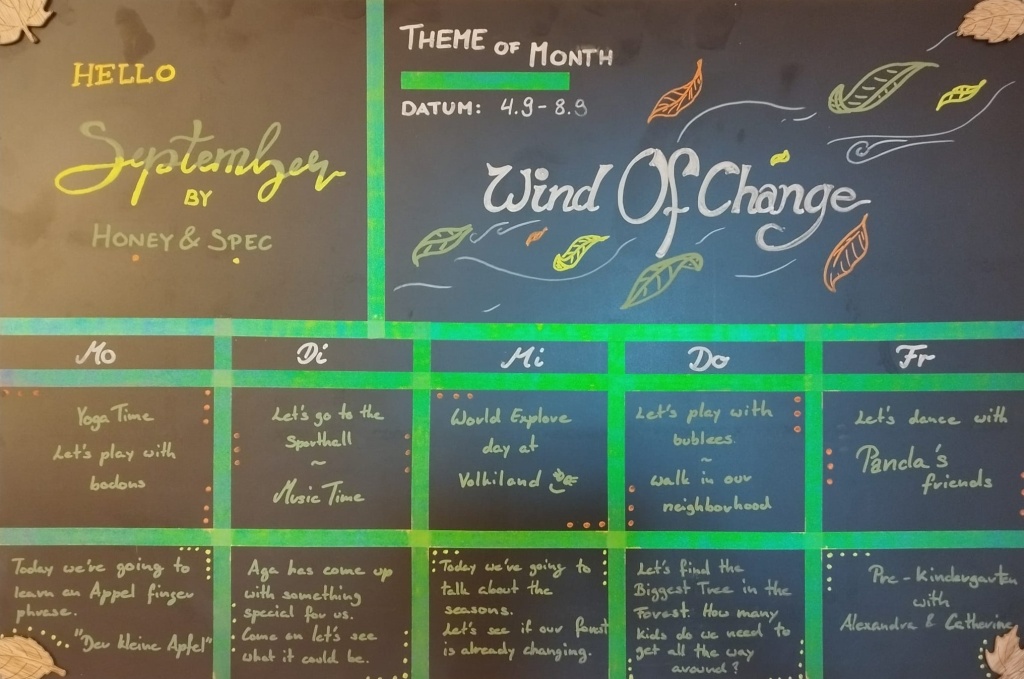 HELLO
September
BY
HONEY & SPEC
THEME OF MONTH
DATUM: 4.9-8.9
Wind Of Change
Mo
Di
Mi
Do
Fr
Yoga Time
Let's play with
badons
Let's go to the
Sporthall
~
Music Time
World Explore
day at
Volkiland
Let's play with
bublees
~
walk in our
neighborhood
Let's dance with
Panda's
friends
Today we're going to
learn an Appel finger
phrase.
"Der kleine Apfel"
Aga has come up
with something
special for us.
Come on let's see
what it could be.
Today we're going to
talk about the
seasons.
Let's see if our forest
is already changing.
Let's find the
Biggest Tree in the
Forest. How many
kids do we need to
get all the way
around?
Pre-kindergarten
with
Alexandra & Catherine